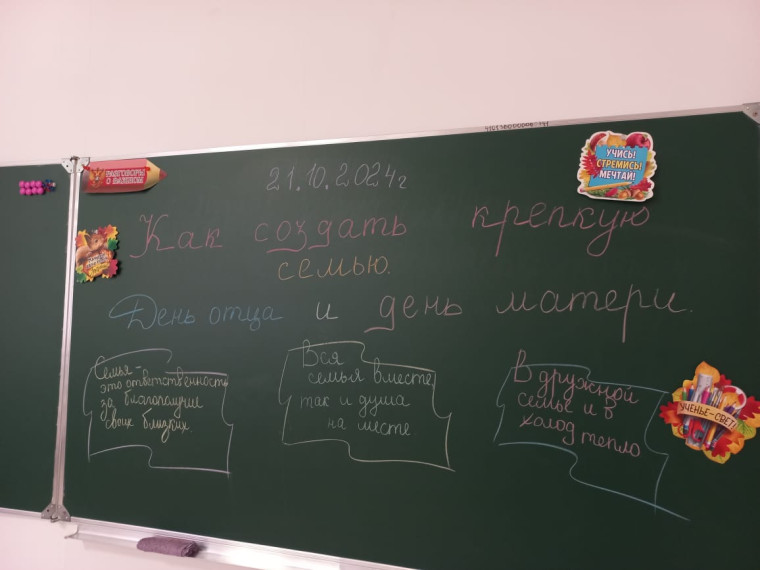 РАЗГОВОРЫ
О ВАЖНОМ
21.10.2024г
УЧИСЬ!
СТРЕМИСЬ!
МЕЧТАЙ!
Как создать крепкую
семью.
День отца и день матери.
Семья -
это ответственность
за благополучие
своих близких.
Вся
семья вместе,
так и душа
на месте.
В дружной
семье и в
холод тепло
УЧЕНЬЕ-СВЕТ!